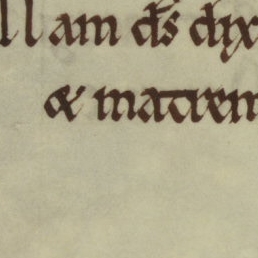 Nam ds dix
& matrem